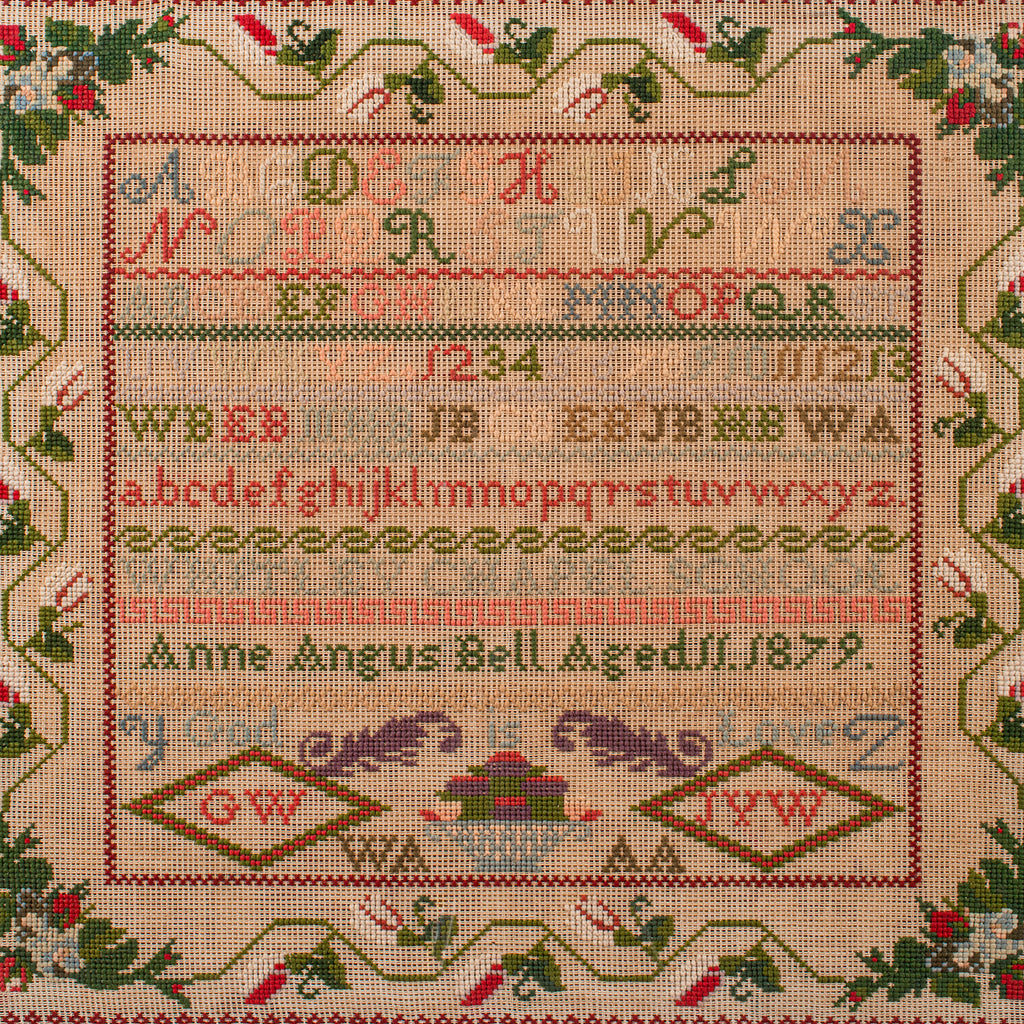 A B C D E F G H I J K L M
N O P Q R S T U V W X
A B C D E F G H I J K L M N O P Q R S T
U V W X Y Z 1 2 3 4 5 6 7 8 9 10 11 12 13
WB EB MB JB EB JB HB WA
a b c d e f g h i j k l m n o p q r s t u v w x y z.
WHITLEY CHAPEL SCHOOL
Anne Angus Bell Aged 11. 1879.
Y God is Love Z
GW JYW
WA AA